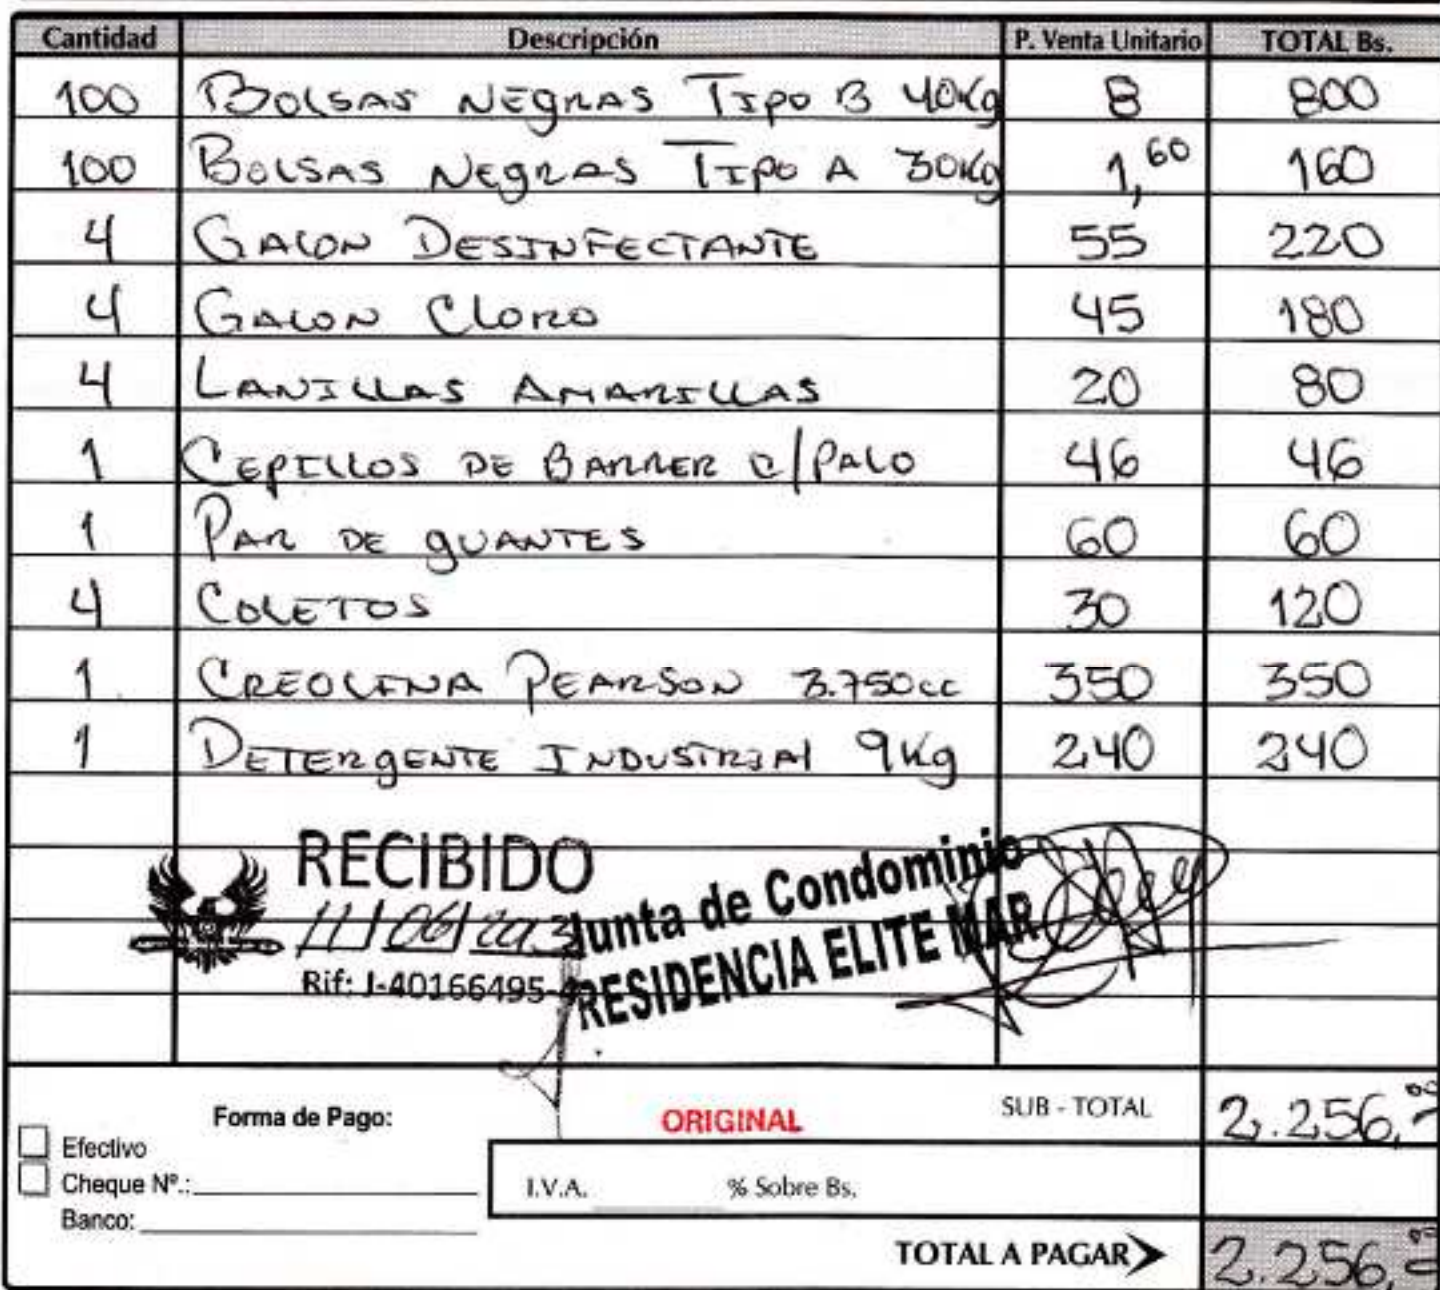 Cantidad Descripción P. Venta Unitario TOTAL Bs.
100 BOLSAS NEGRAS TIPO B 40Kg 8 800
100 BOLSAS NEGRAS TIPO A 30Kg 1,60 160
4 GALON DESINFECTANTE 55 220
4 GALON CLORO 45 180
4 LANILLAS AMARILLAS 20 80
1 CEPILLOS DE BARRER C/PALO 46 46
1 PAR DE GUANTES 60 60
4 COLETOS 30 120
1 CREOLINA PEARSON 3.750cc 350 350
1 DETERGENTE INDUSTRIAL 9Kg 240 240
RECIBIDO
11/06/2013
Rif: J-40166495-
Junta de Condominio
RESIDENCIA ELITE MAR
Forma de Pago: ORIGINAL SUB - TOTAL 2.256,00
Efectivo
Cheque Nº.: I.V.A. % Sobre Bs.
Banco:
TOTAL A PAGAR 2.256,00